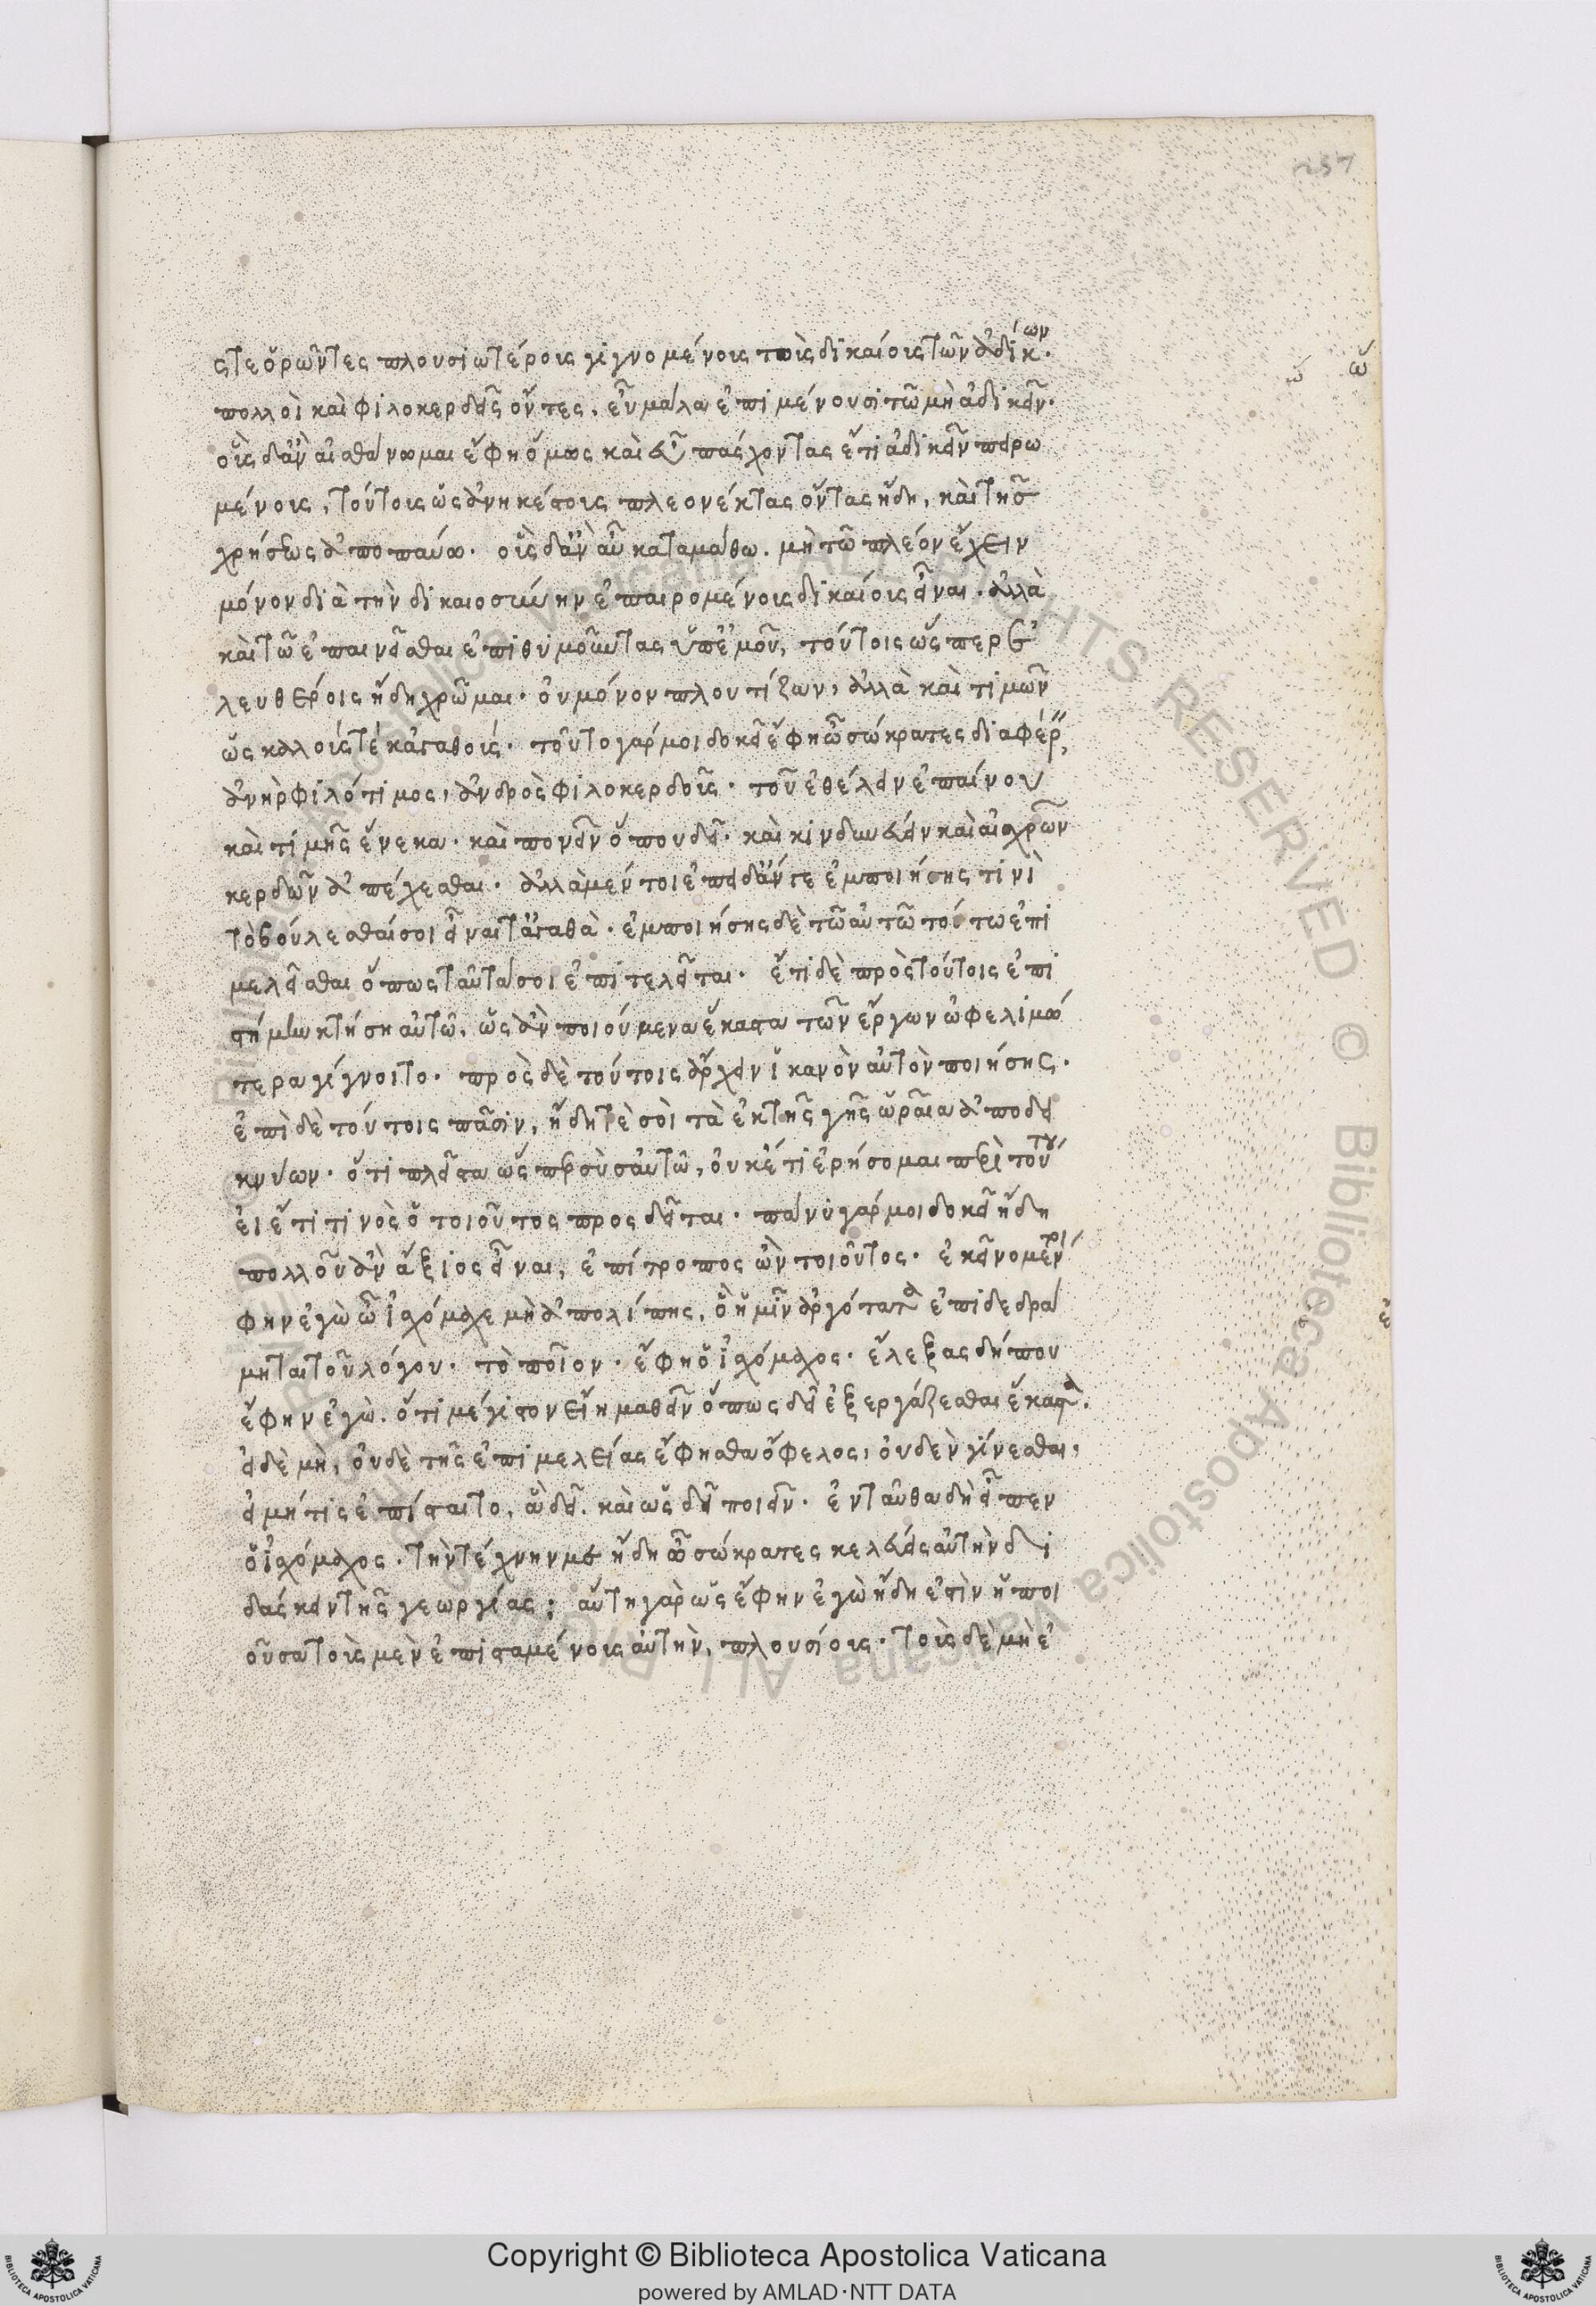 257
στε ὁρῶντες πλουσιωτέρους γιγνομένους τοὺς δικαίους τῶν ἀδίκων.
πολλοὶ καὶ φιλοκερδεῖς ὄντες, εὖ μάλα ἐπιμένουσι τῶ μὴ ἀδικεῖν.
οὓς δ' ἂν αἰσθάνωμαι ἔφη ὅμως καὶ εὖ πάσχοντας ἔτι ἀδικεῖν πειρω
μένους, τούτους ὡς ἀνηκέστους πλεονέκτας ὄντας ἤδη, καὶ τῆς
χρήσεως ἀποπαύω. οὓς δ' ἂν αὖ καταμάθω. μὴ τῶ πλέον ἔχειν
μόνον διὰ τὴν δικαιοσύνην ἐπαιρομένους δικαίους εἶναι. ἀλλὰ
καὶ τῶ ἐπαινεῖσθαι ἐπιθυμοῦντας ὑπ' ἐμοῦ, τούτοις ὥσπερ ἐ
λευθέροις ἤδη χρῶμαι. οὐ μόνον πλουτίζων, ἀλλὰ καὶ τιμῶν
ὡς καλούς τε κἀγαθούς. τοῦτο γάρ μοι δοκεῖ ἔφη ὦ σώκρατες διαφέρ
ἀνὴρ φιλότιμος, ἀνδρὸς φιλοκερδοῦς. τοῦ ἐθέλειν ἐπαίνου
καὶ τιμῆς ἕνεκα. καὶ πονεῖν ὅπου δεῖ. καὶ κινδυνεύειν καὶ αἰσχρῶν
κερδῶν ἀπέχεσθαι. ἀλλὰ μέντοι ἐπειδάν γε ἐμποιήσης τινὶ
τὸ βούλεσθαί σοι εἶναι τἀγαθὰ. ἐμποιήσης δὲ τῶ αὐτῶ τούτω ἐπι
μελεῖσθαι ὅπως ταῦτά σοι ἐπιτελεῖται. ἔτι δὲ πρὸς τούτοις ἐπι
στήμην κτήση αὐτῶ, ὡς ἂν ποιούμενα ἕκαστα τῶν ἔργων ὠφελιμώ
τερα γίγνοιτο. πρὸς δὲ τούτοις ἄρχειν ἱκανὸν αὐτὸν ποιήσης.
ἐπὶ δὲ τούτοις πᾶσιν, ἥδηταί σοι τὰ ἐκ τῆς γῆς ὡραῖα ἀποδει
κνύων. ὅτι πλεῖστα ὥσπερ σὺ σαυτῶ, οὐκέτι ἐρήσομαι περὶ τούτου
εἰ ἔτι τινὸς ὁ τοιοῦτος προσδεῖται. πάνυ γάρ μοι δοκεῖ ἤδη
πολλοῦ ἂν ἄξιος εἶναι, ἐπίτροπος ὢν τοιοῦτος. ἐκεῖνο μέντοι
φην ἐγὼ ὦ ἰσχόμαχε μὴ ἀπολίπης, ὃ ἡμῖν ἀργότατα ἐπιδεδρά
μηται τοῦ λόγου. τὸ ποῖον. ἔφη ὁ ἰσχόμαχος. ἔλεξας δήπου
ἔφην ἐγὼ. ὅτι μέγιστον εἴη μαθεῖν ὅπως δεῖ ἐξεργάζεσθαι ἕκαστα.
εἰ δὲ μὴ, οὐδὲ τῆς ἐπιμελείας ἔφησθα ὄφελος, οὐδὲν γίνεσθαι,
εἰ μή τις ἐπίσταιτο, ἃ δεῖ. καὶ ὡς δεῖ ποιεῖν. ἐνταῦθα δὴ εἶπεν
ὁ ἰσχόμαχος. τὴν τέχνην με ἤδη ὦ σώκρατες κελεύεις αὐτὴν δι
δάσκειν τῆς γεωργίας; αὕτη γὰρ ὡς ἔφην ἐγὼ ἤδη ἐστὶν ἡ ποι
οῦσα τοὺς μὲν ἐπισταμένους αὐτὴν, πλουσίους. τοὺς δὲ μὴ ἐ
Copyright © Biblioteca Apostolica Vaticana
powered by AMLAD·NTT DATA